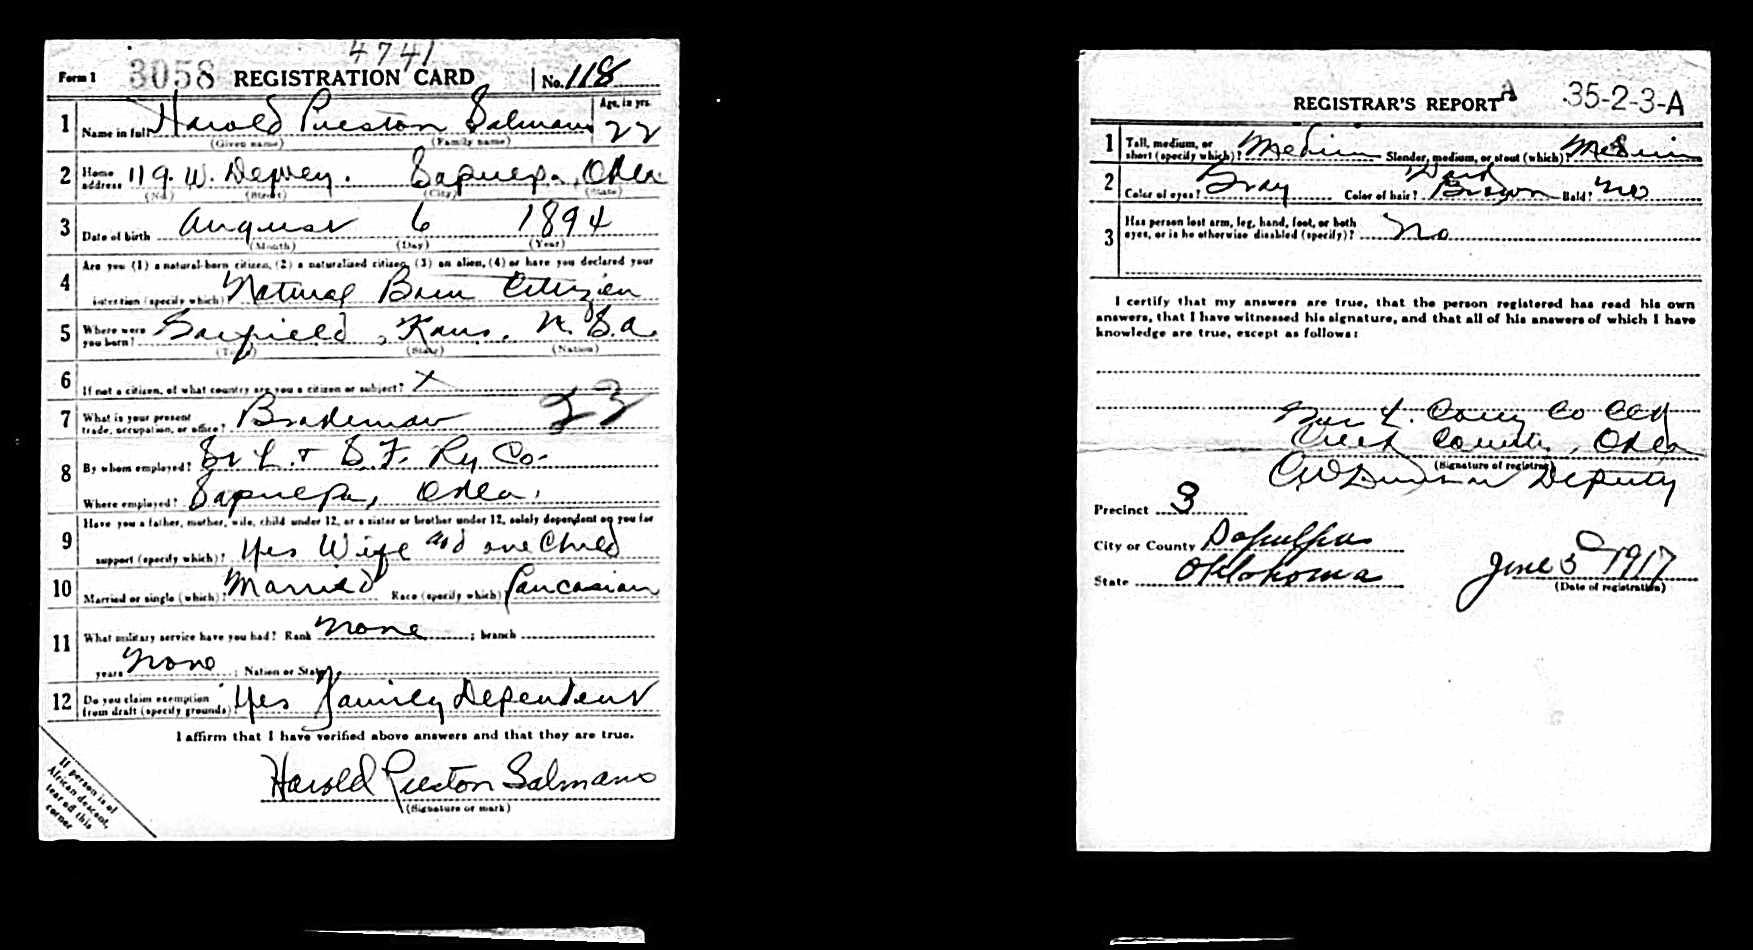 4741
Form 1 3058 REGISTRATION CARD No. 118
1 Name in full Harold Preston Salmans Age, in yrs. 22
(Given name) (Family name)
2 Home address 119. W. Dewey. Sapulpa, Okla
(No.) (Street) (City) (State)
3 Date of birth August 6 1894
(Month) (Day) (Year)
Are you (1) a natural-born citizen, (2) a naturalized citizen, (3) an alien, (4) or have you declared your
4 intention (specify which)? Natural Born Citizen
5 Where were you born? Garfield, Kans. U.S.A.
(Town) (State) (Nation)
6 If not a citizen, of what country are you a citizen or subject? X
7 What is your present trade, occupation, or office? Brakeman 22
8 By whom employed? St L. + S. F. Ry Co.
Where employed? Sapulpa, Okla.
Have you a father, mother, wife, child under 12, or a sister or brother under 12, solely dependent on you for
9 support (specify which)? Yes Wife and one Child
10 Married or single (which)? Married Race (specify which)? Caucasian
11 What military service have you had? Rank None ; branch
years None ; Nation or State
12 Do you claim exemption from draft (specify grounds)? Yes Family Dependent
I affirm that I have verified above answers and that they are true.
Harold Preston Salmans
(Signature or mark)
If person is of
African descent,
tear off this
corner
35-2-3-A
REGISTRAR'S REPORT A
1 Tall, medium, or short (specify which)? Medium Slender, medium, or stout (which)? Medium
Dark
2 Color of eyes? Gray Color of hair? Brown Bald? No
3 Has person lost arm, leg, hand, foot, or both
eyes, or is he otherwise disabled (specify)? No
I certify that my answers are true, that the person registered has read his own
answers, that I have witnessed his signature, and that all of his answers of which I have
knowledge are true, except as follows:
Co Clk
Creek County, Okla
(Signature of registrar)
Deputy
Precinct 3
City or County Sapulpa
State Oklahoma
June 5 1917
(Date of registration)